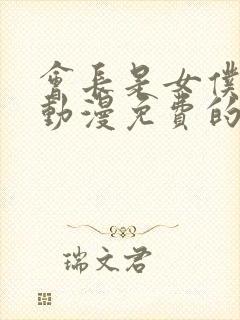 會長是女僕
動漫免費的
瑞文君